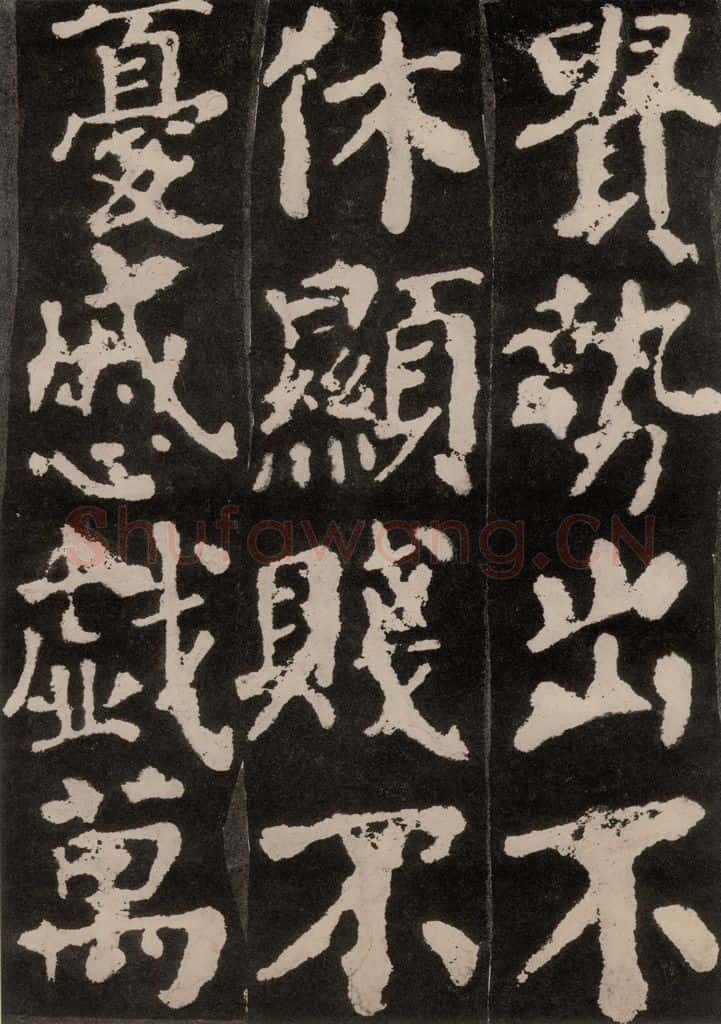 賢勢出不
休顯賤不
憂慼戲萬
Shufawang.CN